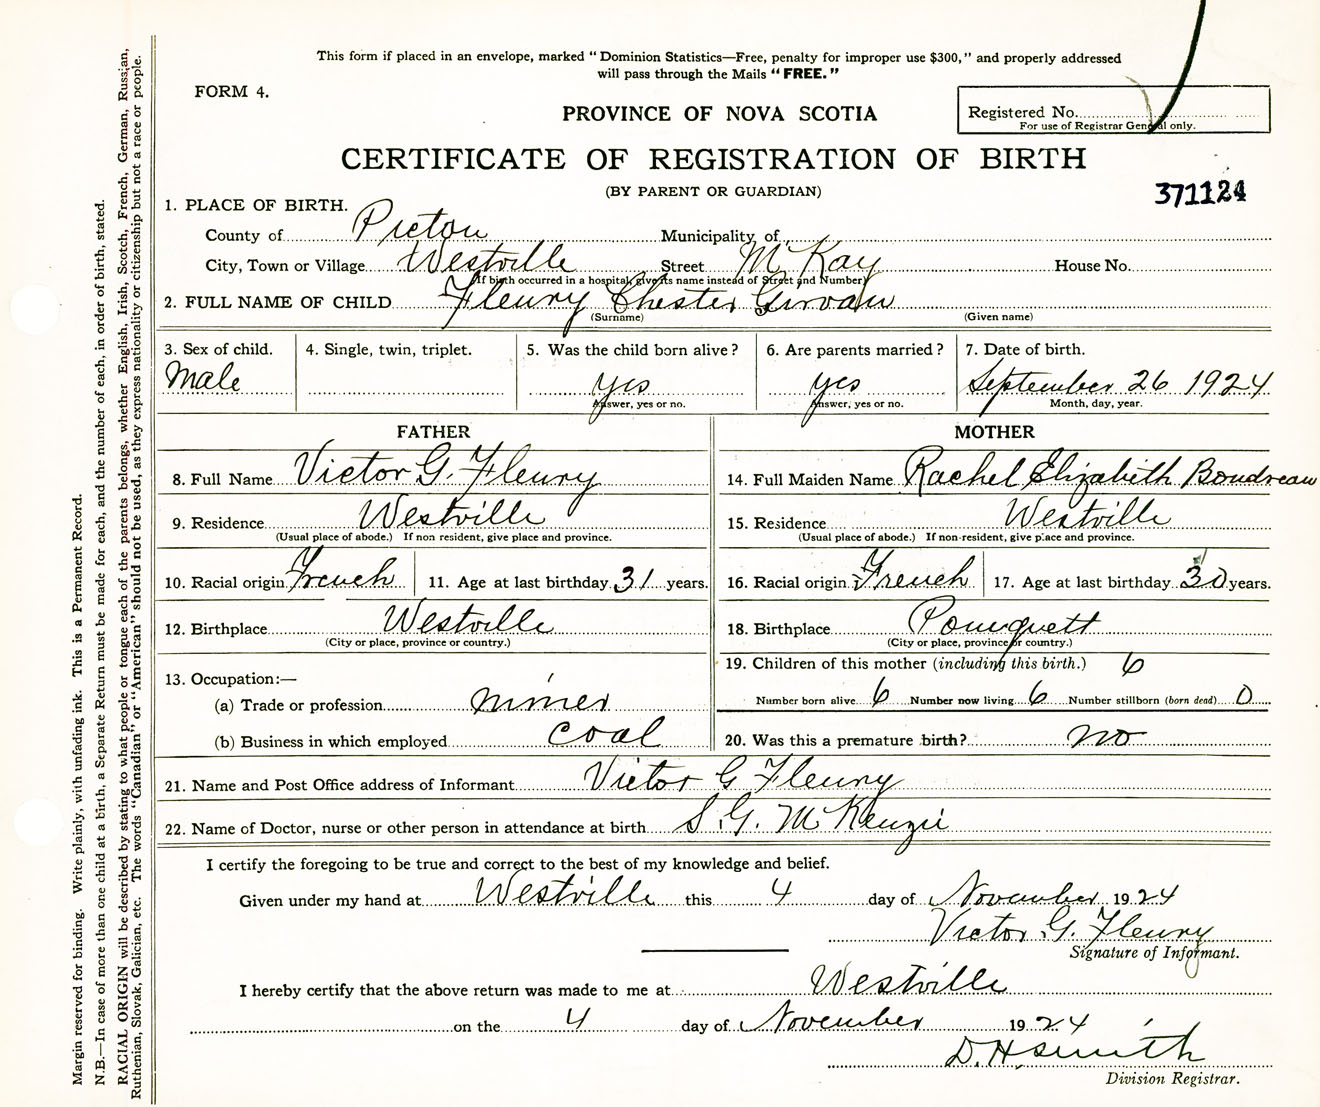 This form if placed in an envelope, marked "Dominion Statistics—Free, penalty for improper use $300," and properly addressed
will pass through the Mails "FREE."
FORM 4.
PROVINCE OF NOVA SCOTIA
Registered No.
For use of Registrar General only.
CERTIFICATE OF REGISTRATION OF BIRTH
(BY PARENT OR GUARDIAN)
371124
1. PLACE OF BIRTH.
County of Pictou Municipality of
City, Town or Village Westville Street McKay House No.
(If birth occurred in a hospital, give its name instead of Street and Number)
2. FULL NAME OF CHILD Fleury Chester Girvan
(Surname) (Given name)
3. Sex of child. 4. Single, twin, triplet. 5. Was the child born alive? 6. Are parents married? 7. Date of birth.
Male yes yes September 26 1924
Answer, yes or no. Answer, yes or no. Month, day, year.
FATHER MOTHER
8. Full Name Victor G. Fleury 14. Full Maiden Name Rachel Elizabeth Boudreau
9. Residence Westville 15. Residence Westville
(Usual place of abode.) If non resident, give place and province. (Usual place of abode.) If non-resident, give place and province.
10. Racial origin French 11. Age at last birthday 31 years. 16. Racial origin French 17. Age at last birthday 30 years.
12. Birthplace Westville 18. Birthplace Pomquett
(City or place, province or country.) (City or place, province or country.)
19. Children of this mother (including this birth.) 6
13. Occupation:—
(a) Trade or profession miner Number born alive 6 Number now living 6 Number stillborn (born dead) 0
(b) Business in which employed coal 20. Was this a premature birth? no
21. Name and Post Office address of Informant Victor G Fleury
22. Name of Doctor, nurse or other person in attendance at birth S. G. McKenzie
I certify the foregoing to be true and correct to the best of my knowledge and belief.
Given under my hand at Westville this 4 day of November 1924
Victor G. Fleury
Signature of Informant.
I hereby certify that the above return was made to me at Westville
on the 4 day of November 1924
D. H. Smith
Division Registrar.
Margin reserved for binding. Write plainly, with unfading ink. This is a Permanent Record.
N.B.—In case of more than one child at a birth, a Separate Return must be made for each, and the number of each, in order of birth, stated.
RACIAL ORIGIN will be described by stating to what people or tongue each of the parents belongs, whether English, Irish, Scotch, French, German, Russian,
Ruthenian, Slovak, Galician, etc. The words "Canadian" or "American" should not be used, as they express nationality or citizenship but not a race or people.